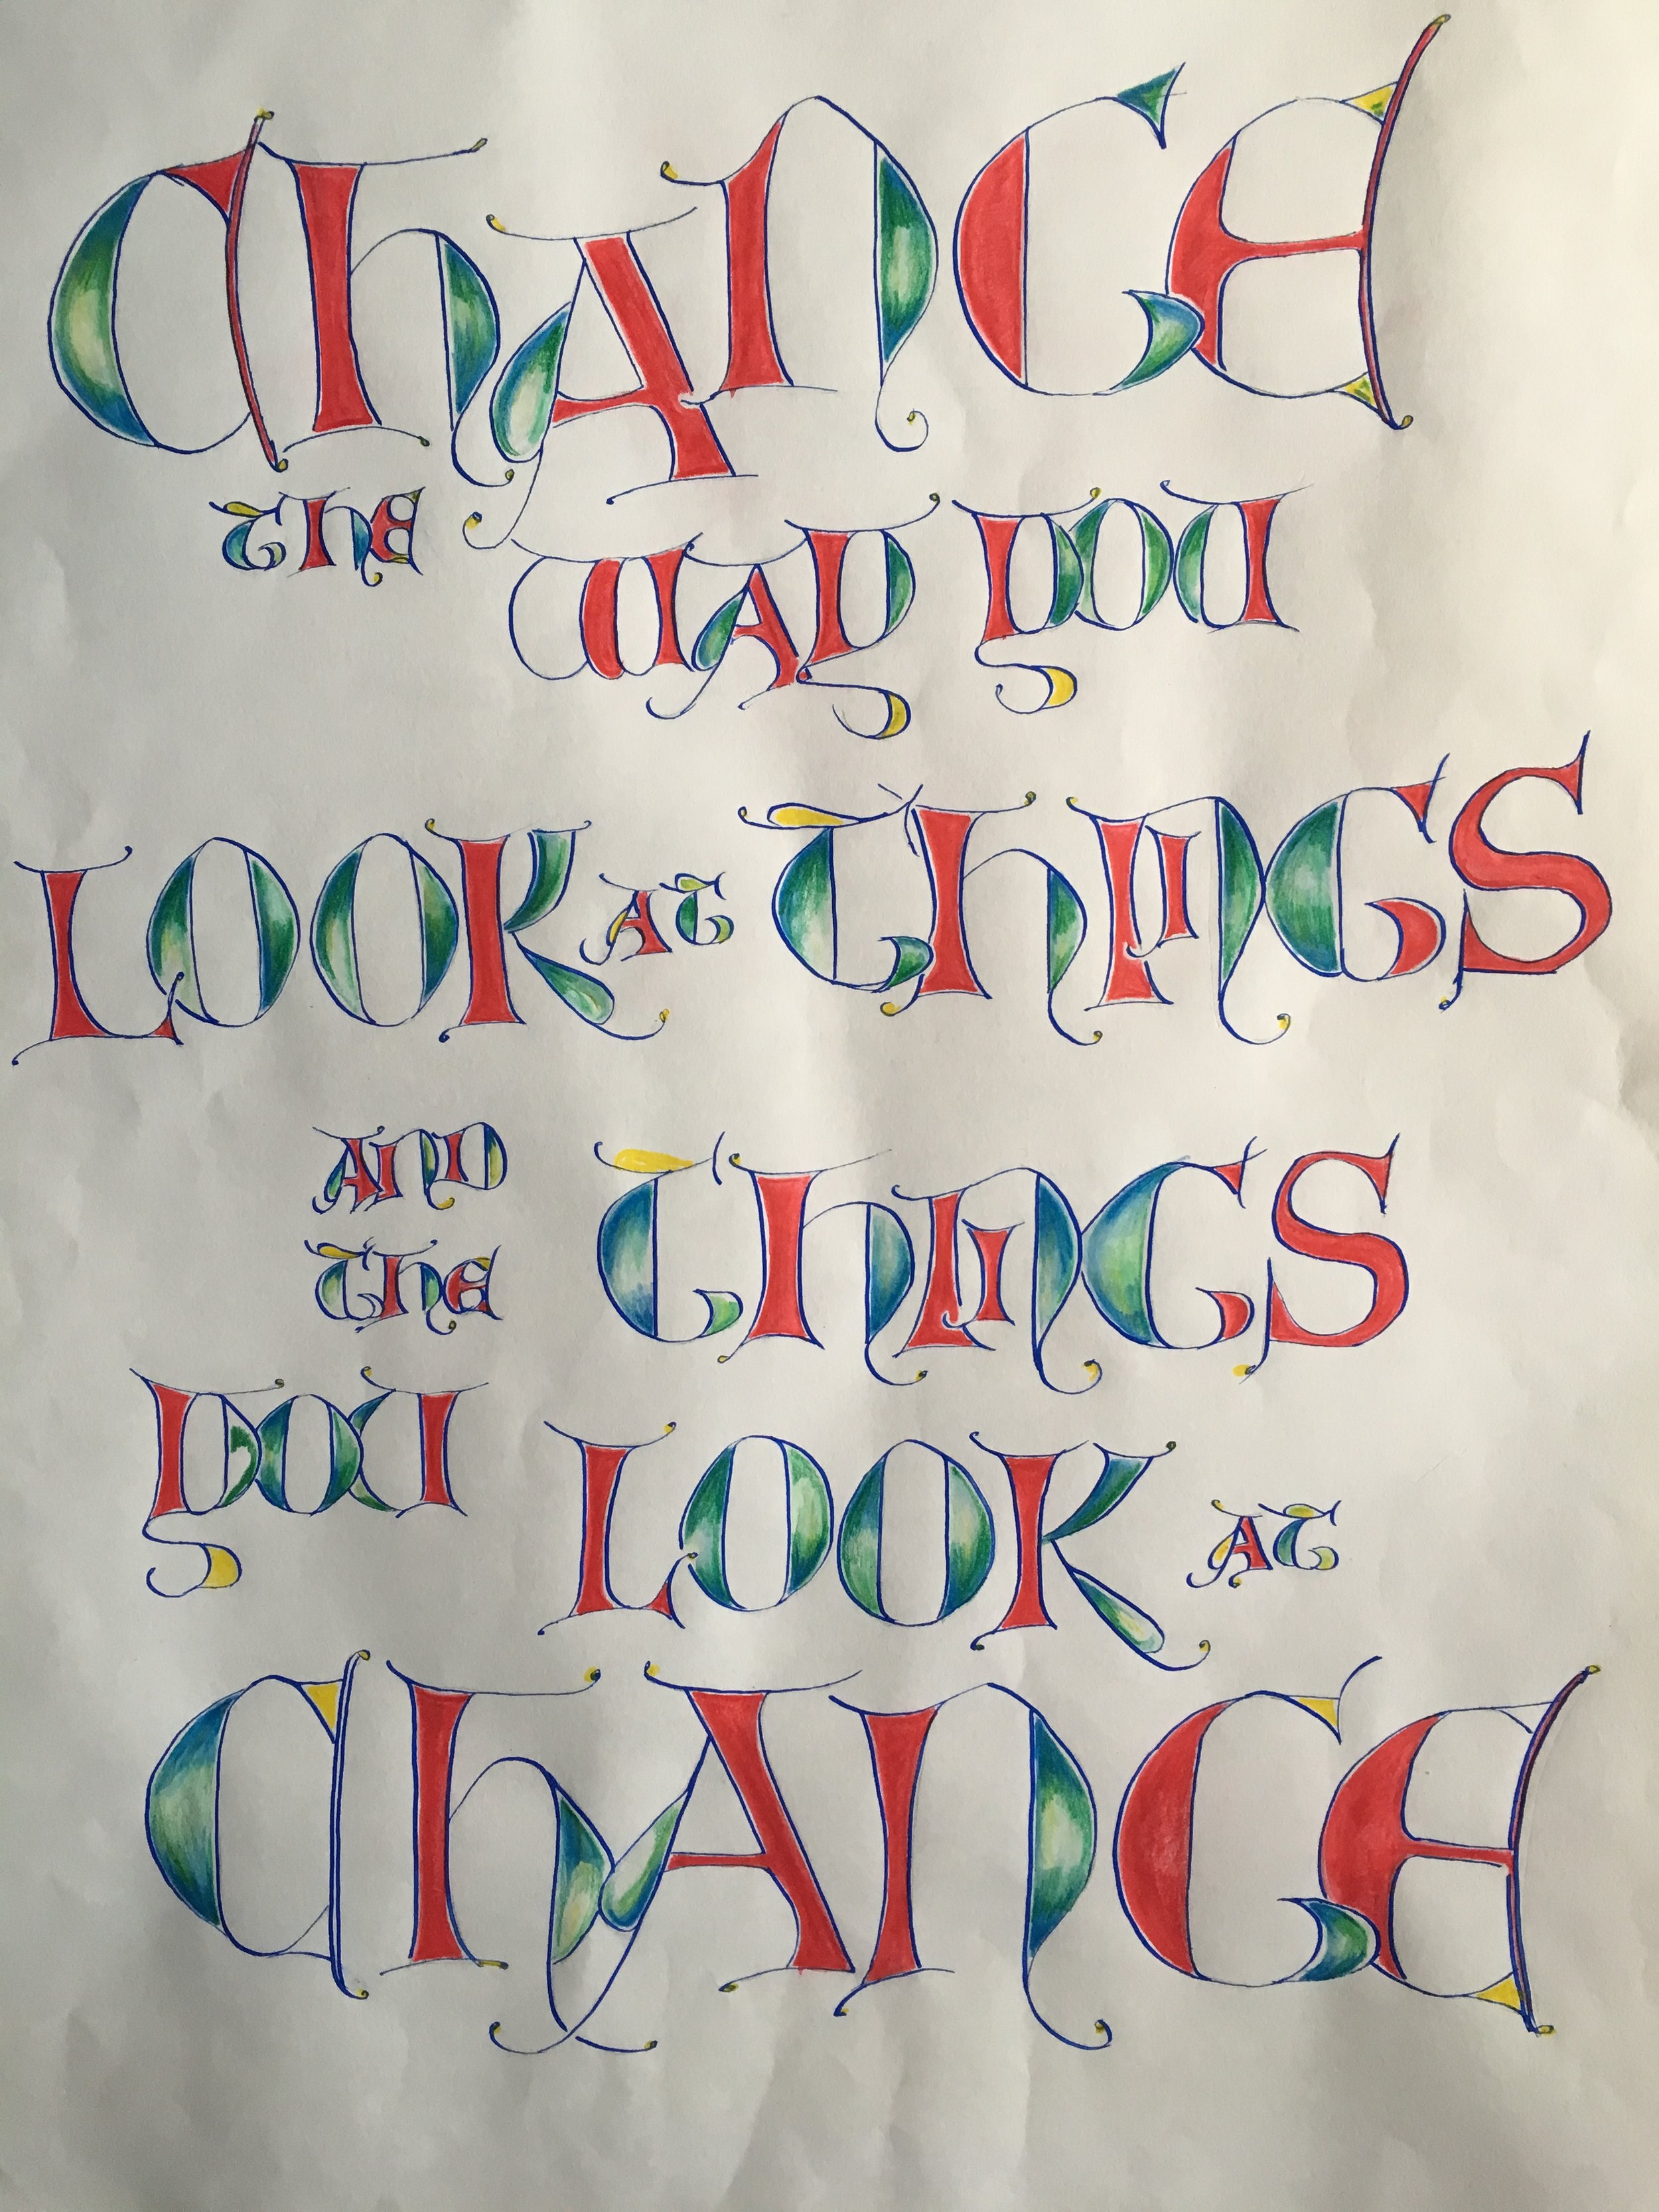 ChANGE
ThE WAY YOU
LOOK AT ThINGS
AND
ThE ThINGS
YOU LOOK AT
ChANGE